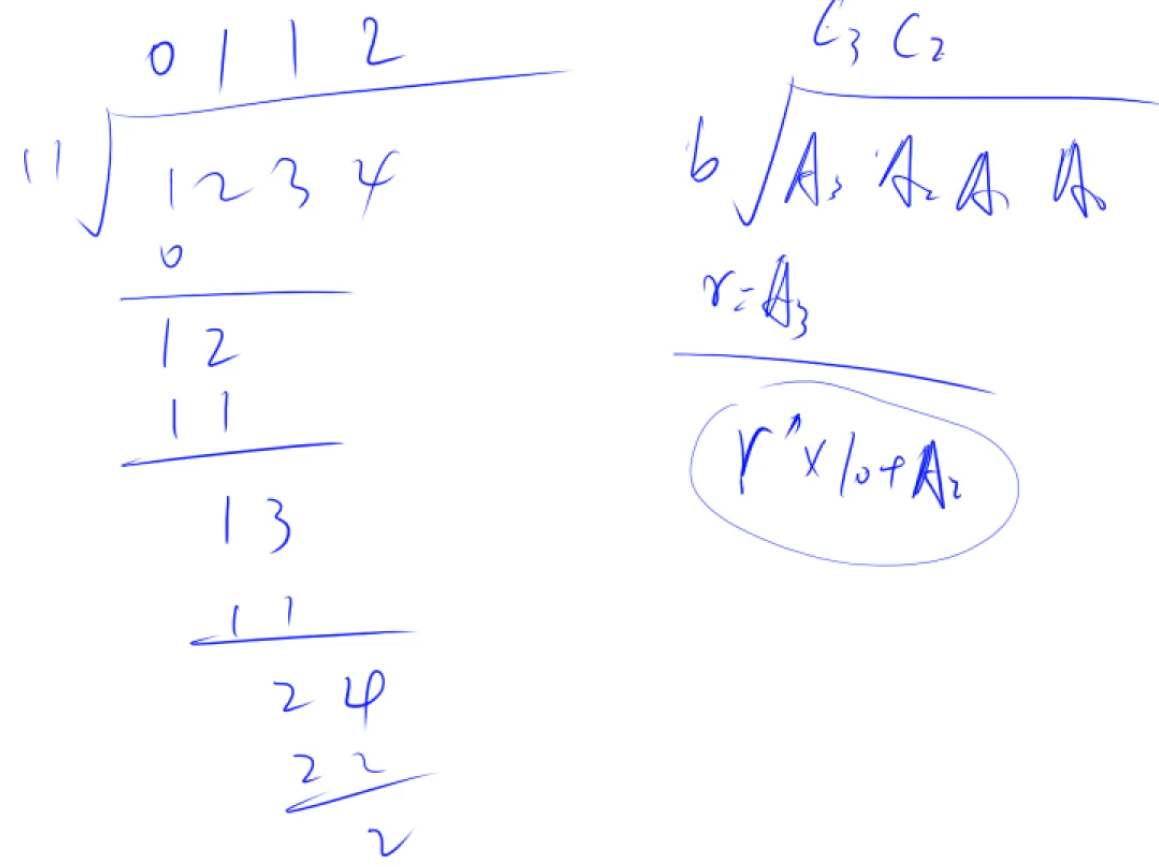 0 1 1 2
11 1 2 3 4
0
1 2
1 1
1 3
1 1
2 4
2 2
2
C3 C2
b A3 A2 A1 A0
r=A3
r'×10+A2